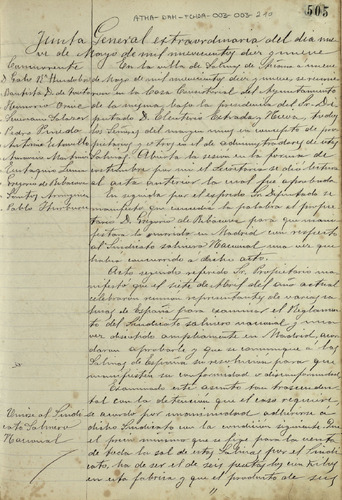 ATHA-DAH-FCHUA-003-003-240
505
Junta General extraordinaria del dia nue
ve de Mayo de mil novecientos diez y nueve
Concurrente
Pablo
Honorio Once
Luciano Salazar
Pedro Pinedo
Antonio
Eustaquio
Gregorio de Ribacoba
Santos
Pablo
En la villa de Salinas de a nueve
de Mayo de mil novecientos diez y nueve, se reunie
ron en la Casa Consistorial del Ayuntamiento
de la misma, bajo la presidencia del Sr. Di
putado D. Eleuterio Estrada y Nieva, todos
los Señores del margen unos en concepto de pro
pietarios y otros en el de administradores de estas
Salinas. Abierta la sesion en la forma de
costumbre por mi el Secretario se dio lectura
al acta anterior la cual fue aprobada
En seguida por el expresado Sr. Diputado se
manifesto, que concedia la palabra al propie
tario D. Gregorio de Ribacoba para que mani
festara lo ocurrido en Madrid con respecto
al Sindicato salinero Nacional una vez que
habia concurrido a dicho acto.
Acto seguido referido Sr. Propietario ma
nifesto que el siete de Abril del año actual
celebraron reunion representantes de varias sa
linas de España para examinar el Reglamen
to del Sindicato salinero nacional, y una
vez discutido ampliamente en Madrid, acor
daron aprobarle y que se comunique a las
Salinas de España su resolucion para que
manifiesten su conformidad o disconformidad
Examinado este asunto tan trascenden
tal con la detencion que el caso requiere,
Unirse al Sindi
cato Salinero
Nacional
se acordo por unanimidad adherirse a
dicho Sindicato con la condicion siguiente: Que
el precio minimo que se fije para la venta
de toda la sal de estas Salinas por el Sindi
cato, ha de ser el de seis pesetas los cien kilos
en esta fabrica y que el producto de ses